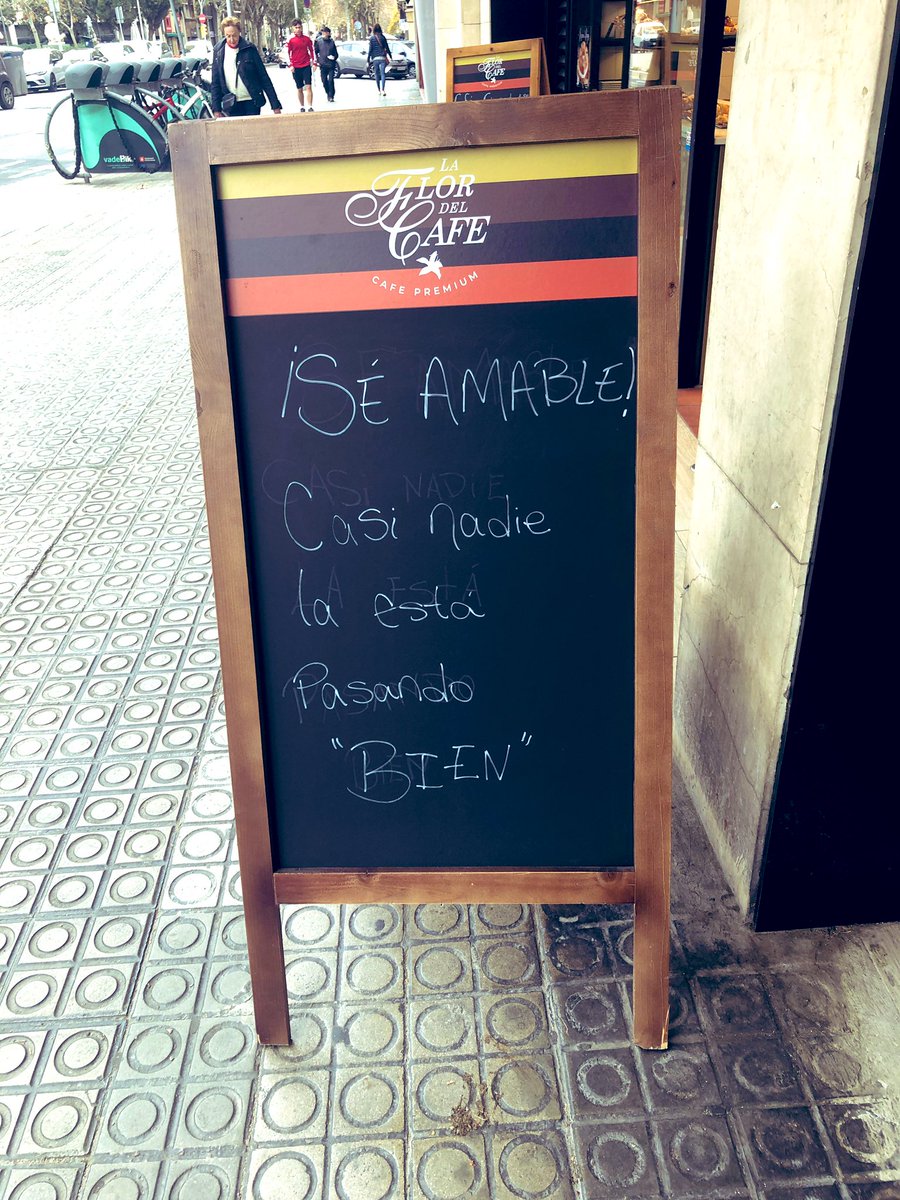 LA
FLOR
DEL
CAFE
CAFE PREMIUM
¡SÉ AMABLE!
Casi nadie
la está
Pasando
"BIEN"
FLOR
CAFE
vadeBik